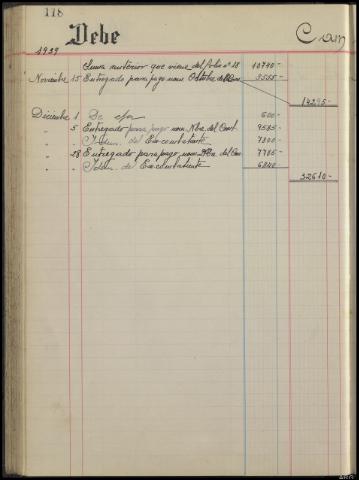 118
Debe
1939
Suma anterior que viene del folio nº 18 10740-
Noviembre 15 Entregado para pago nom. Octubre del Com. 3555-
14295-
Diciembre 1 De 600-
" 5 Entregado para pago nom. Nbre. del Cont. 9585-
" " Idem. del Excombatiente 7800-
" 28 Entregado para pago nom. Dbre. del Com. 7785-
" " Idem. del Excombatiente 6840-
32610-